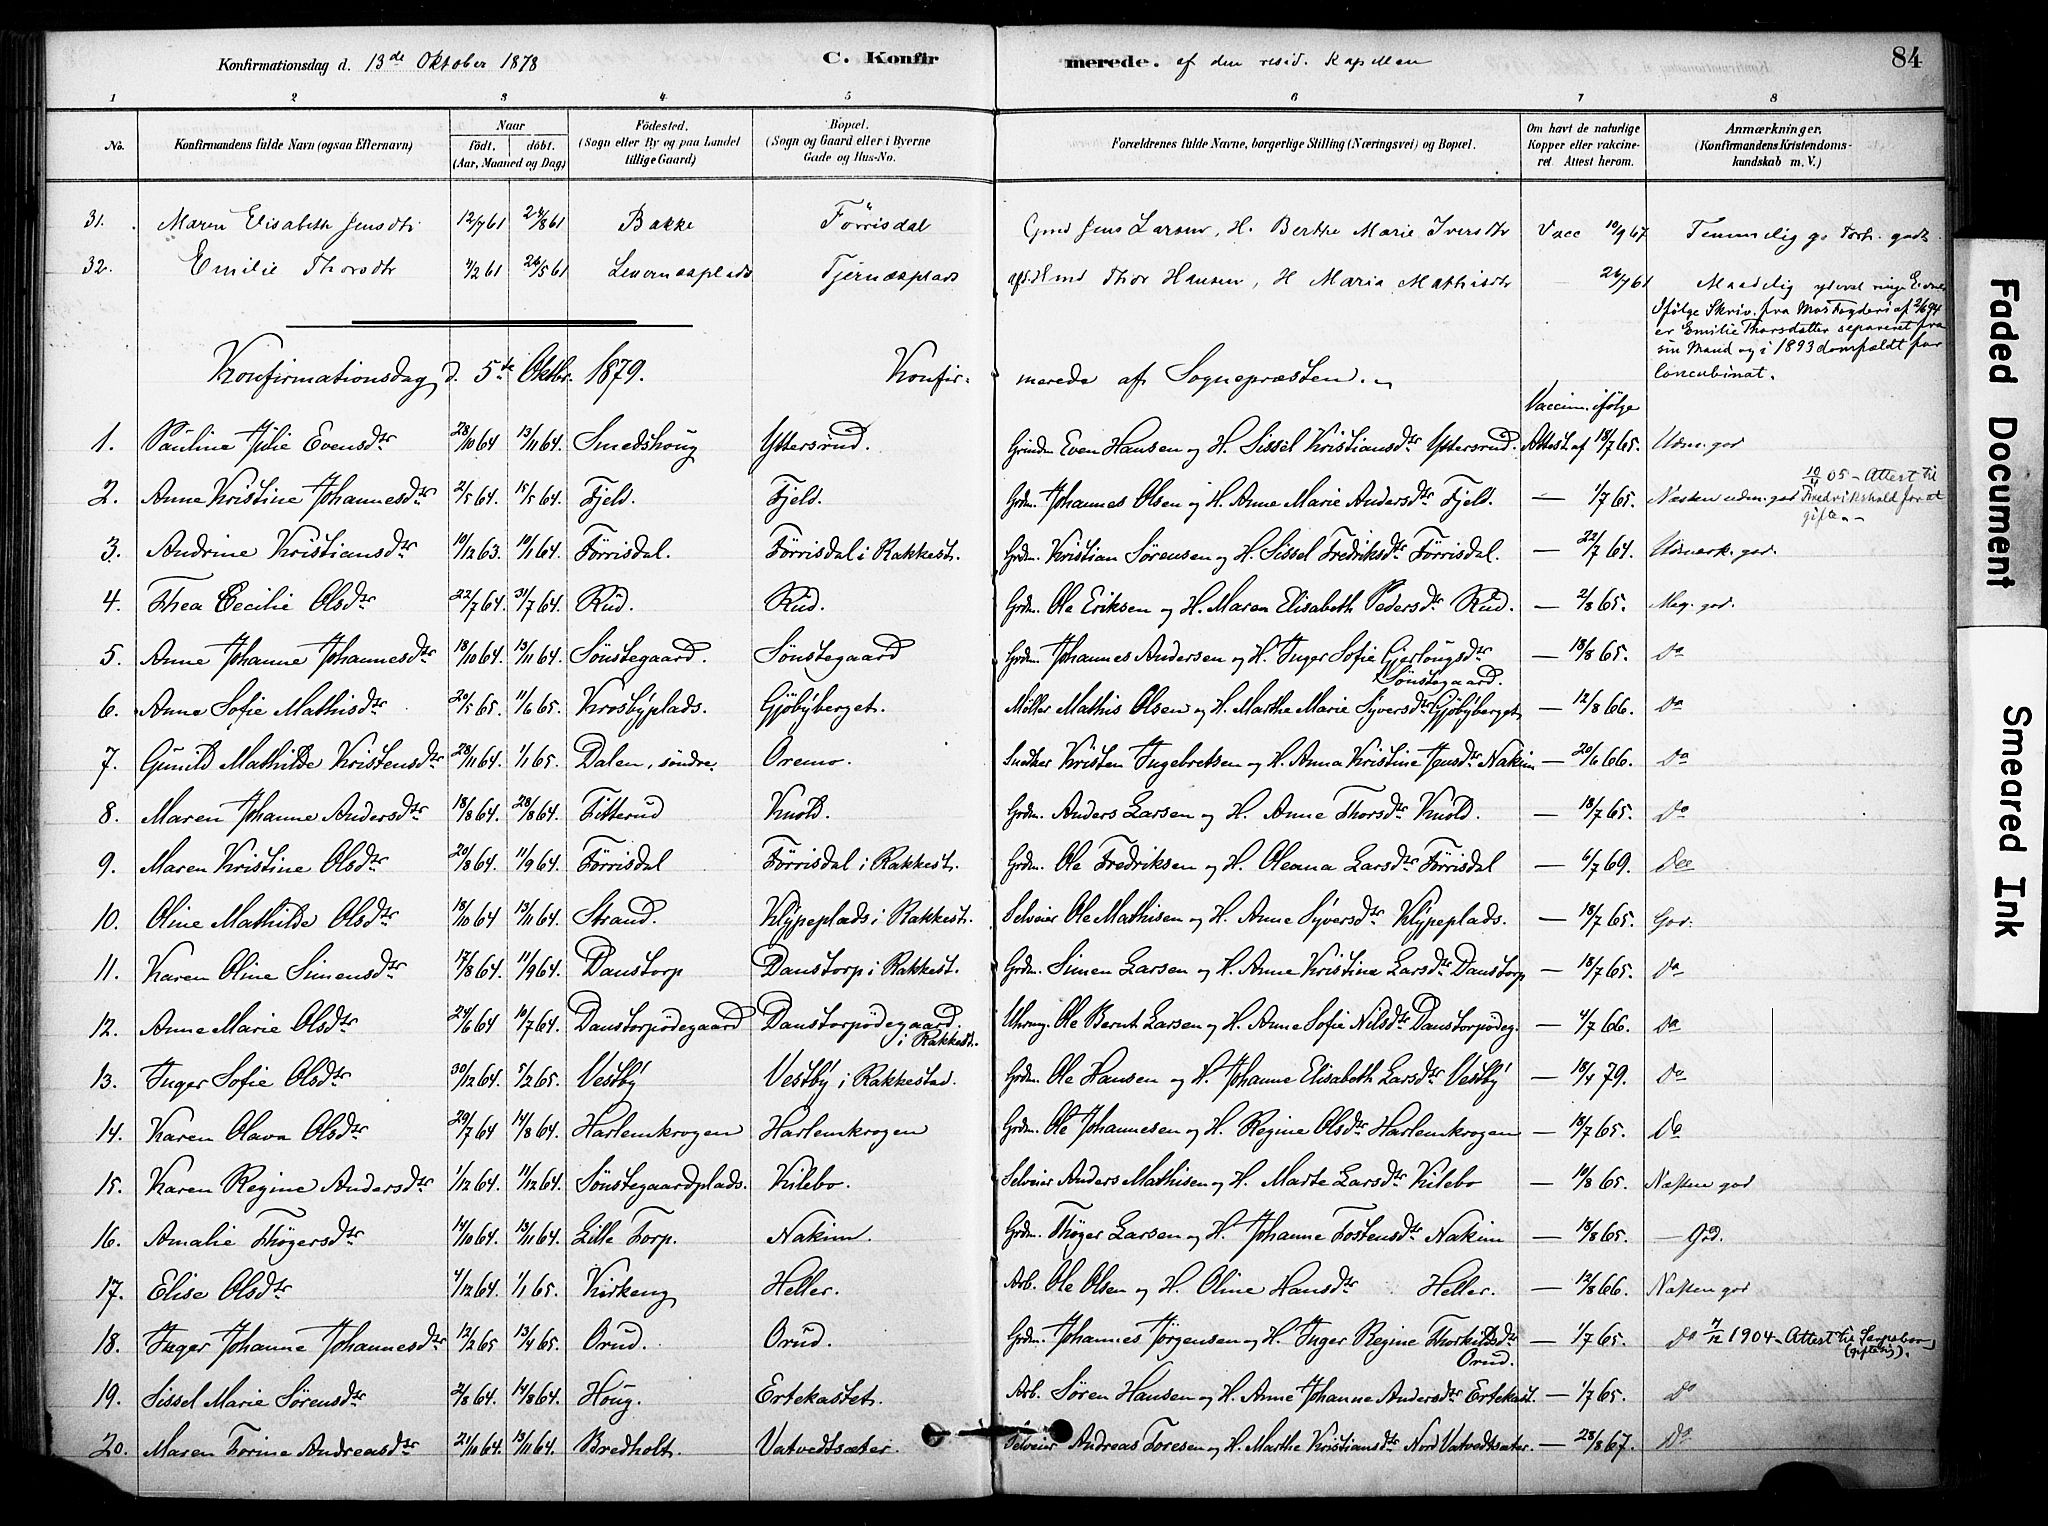 Konfirmationsdag d. 13de Oktober 1878 C. Konfirmerede. af den resid. Kapellan 84
1 2 3 4 5 6 7 8
No. Konfirmandens fulde Navn (ogsaa Efternavn) Naar født. døbt. (Aar, Maaned og Dag) Fødested. (Sogn eller By og paa Landet tillige Gaard) Bopæl. (Sogn og Gaard eller i Byerne Gade og Hus-No. Forældrenes fulde Navne, borgerlige Stilling (Næringsvei) og Bopæl. Om havt de naturlige Kopper eller vakcineret. Attest herom. Anmærkninger. (Konfirmandens Kristendomskundskab m. V.)
31. Maren Elisabeth Jensdtr 12/7 61 24/8 61 Bakke Förrisdal Gmd Jens Larsen, H. Berthe Marie Iversdtr Vacc 10/9 67 Temmelig go
32. Emilie Thorsdtr 4/2 61 26/5 61 Levernæsplads Tjernæsplads Thor Hansen, H Maria Mathisdtr 26/7 61 Maadelig
Ifølge Skriv. fra
er Emilie Thorsdatter separeret fra
sin Mand og i 1893 domfældt for
Concubinat.
Konfirmationsdag d. 5te Oktbr. 1879. Konfirmerede af Sognepræsten.
Vaccin. ifølge
1. Pauline Julie Evensdtr 28/10 64 13/11 64. Smedshoug Yttersrud. Grdm Even Hansen og H. Sissel Kristiansdtr Yttersrud. Attest af 18/7 65. Udm. god
2. Anne Kristine Johannesdtr 2/5 64. 15/5 64. Fjeld. Fjeld. Grdm. Johannes Olsen og H. Anne Marie Andersdtr Fjeld. — 1/7 65. Næsten udm. god 10/4 05 - Attest til Fredrikshald for at gifte
3. Andrine Kristiansdtr 10/12 63. 10/1 64. Förrisdal. Förrisdal i Rakkest. Grdm. Kristian Sørensen og H. Sissel Fredriksdtr Förrisdal. — 22/7 64. Udmærk. god.
4. Thea Cecilie Olsdtr 22/7 64. 31/7 64. Rud. Rud. Grdm. Ole Eriksen og H. Maren Elisabeth Pedersdtr Rud. — 2/8 65. Meg. god.
5. Anne Johanne Johannesdtr 18/10 64. 13/11 64. Sönstegaard. Sönstegaard Grdm. Johannes Andersen og H. Inger Sofie Gjerlougsdtr Sönstegaard. — 18/8 65. Do
6. Anne Sofie Mathisdtr 20/5 65. 11/6 65. Krosbyplads. Gjöbyberget. Møller Mathis Olsen og H. Marthe Marie Syversdtr Gjöbyberget — 12/8 66. Do
7. Gunild Mathilde Kristensdtr 28/11 64. 1/1 65. Dalen, söndre. Oremo. Snedker Kristen Ingebretsen og H. Anna Kristine Jensdtr Nakim — 20/6 66. Do
8. Maren Johanne Andersdtr 18/8 64. 28/8 64. Titterud Knold. Grdm. Anders Larsen og H. Anne Thorsdtr Knold. — 18/7 65. Do
9. Maren Kristine Olsdtr 20/8 64. 11/9 64. Förrisdal Förrisdal i Rakkest. Grdm. Ole Fredriksen og H. Oleana Larsdtr Förrisdal — 6/7 69. Do
10. Oline Mathilde Olsdtr 18/10 64 13/11 64. Strand. Klypeplads i Rakkest. Selveier Ole Mathisen og H. Anne Syversdtr Klypeplads. — 18/7 65. God.
11. Karen Oline Simensdtr 17/8 64. 11/9 64. Danstorp Danstorp i Rakkest. Grdm. Simen Larsen og H. Anne Kristine Larsdtr Danstorp — 18/7 65. Do
12. Anne Marie Olsdtr 24/6 64 10/7 64. Danstorpödegaard Danstorpödegaard. i Rakkest. Ole Bernt Larsen og H. Anne Sofie Nilsdtr Danstorpödeg. — 4/7 66. Do
13. Inger Sofie Olsdtr 30/12 64. 5/2 65. Vestby Vestby i Rakkestad. Grdm. Ole Hansen og H. Johanne Elisabeth Larsdtr Vestby — 18/4 79. Do
14. Karen Olava Olsdtr 29/7 64 14/8 64. Harlemkrogen Harlemkrogen Grdm. Ole Johannesen og H. Regine Olsdtr Harlemkrogen — 18/7 65. Do
15. Karen Regine Andersdtr 1/12 64. 11/12 64. Sönstegaardplads. Kilebo. Selveier Anders Mathisen og H. Marte Larsdtr Kilebo — 10/8 65. Næsten god
16. Amalie Thøgersdtr 14/10 64. 13/11 64. Lille Torp. Nakim. Grdm. Thøger Larsen og H. Johanne Tostensdtr Nakim — 18/8 65. — God.
17. Elise Olsdtr 4/12 64. 1/1 65. Kirkeng Heller. Arb. Ole Olsen og H. Oline Hansdtr Heller. — 12/8 66. Næsten god
18. Inger Johanne Johannesdtr 12/2 65 13/4 65. Orud. Orud. Grdm. Johannes Jørgensen og H. Inger Regine Thorkildsdtr Orud. — 1/7 65. Do 7/12 1904 - Attest til Sarpsborg (giftes).
19. Sissel Marie Sörensdtr 2/8 64. 14/8 64. Houg. Ertekastet. Arb. Sören Hansen og H. Anne Johanne Andersdtr Ertekast. — 1/7 65. Do
20. Maren Torine Andreasdtr 21/10 64. 13/11 64. Bredholt. Vatvedtsæter. Selveier Andreas Toresen og H. Marthe Kristiansdtr Nord Vatvedtsæter — 28/8 67. Do
Faded Document
Smeared Ink